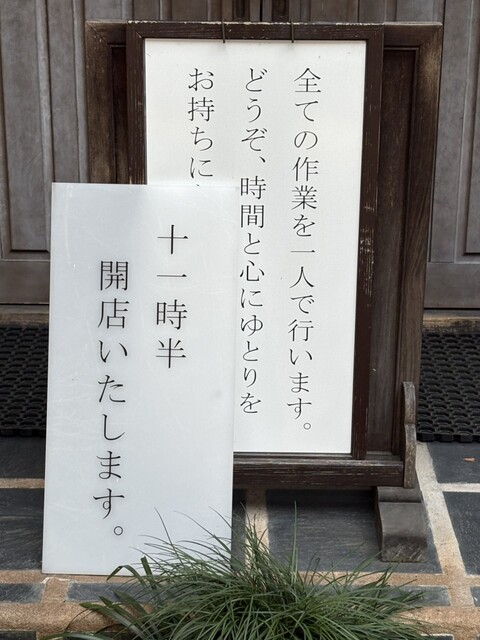 全ての作業を一人で行います。
どうぞ、時間と心にゆとりを
お持ちに
十一時半
開店いたします。